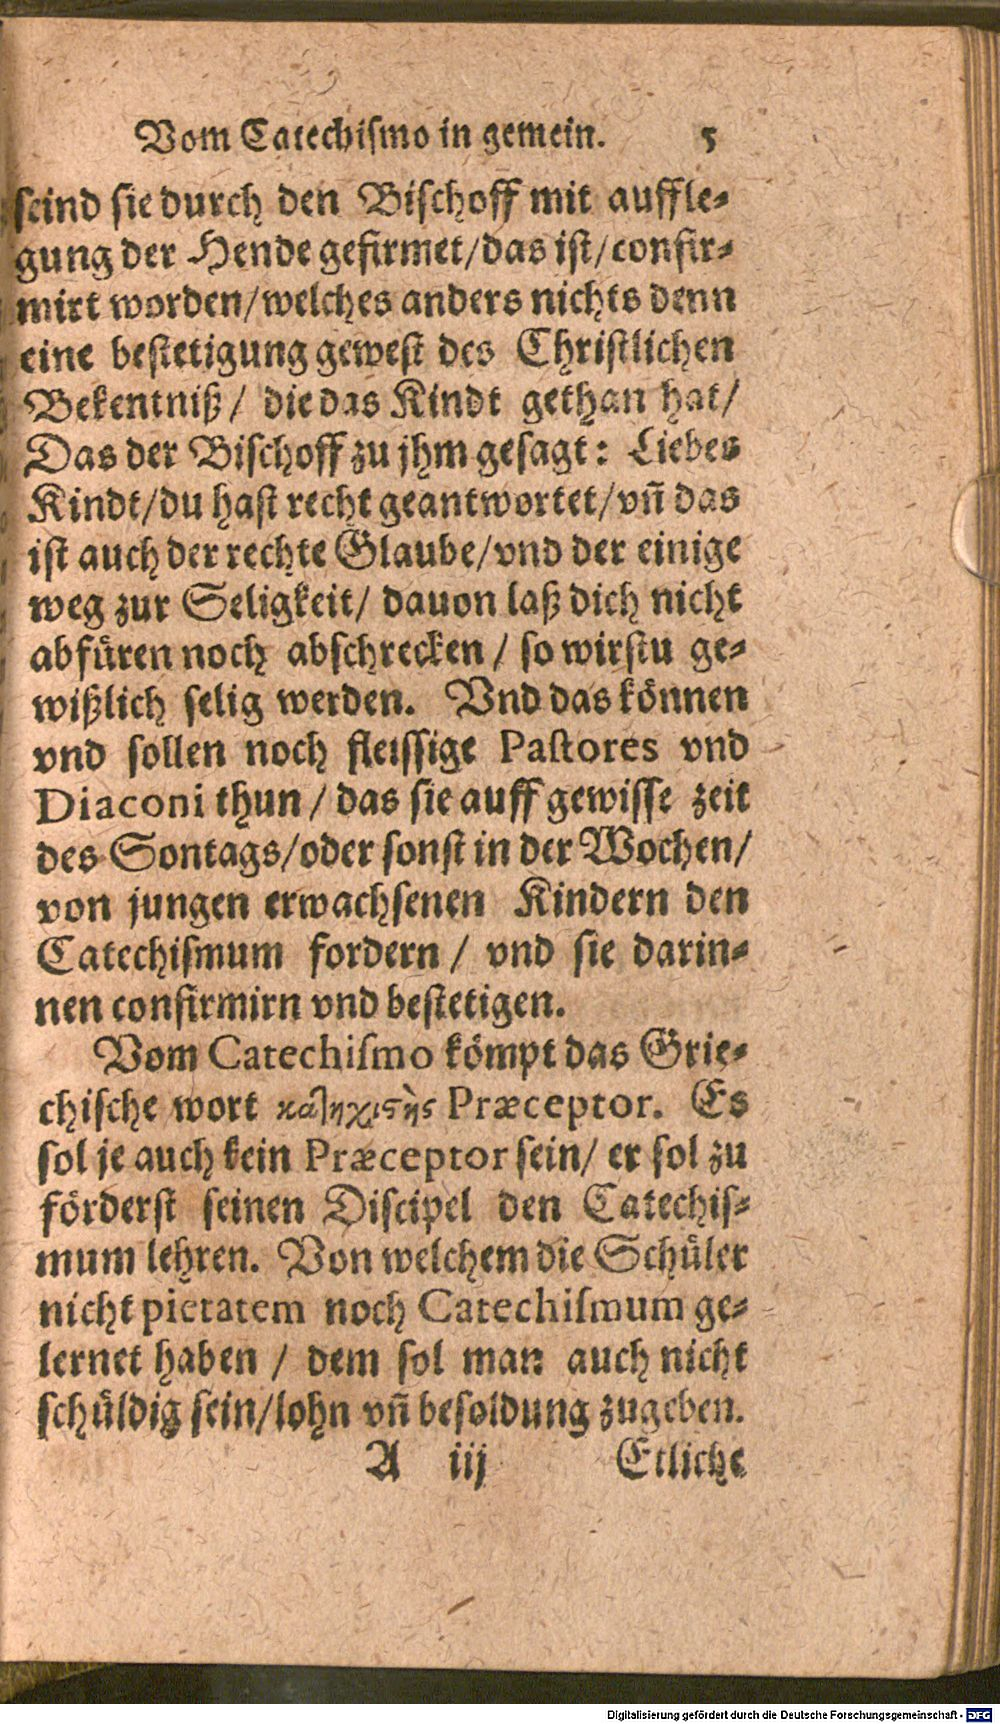 Vom Catechiſmo in gemein. 5
ſeind ſie durch den Biſchoff mit auffle⸗
gung der Hende gefirmet/das iſt/confir⸗
mirt worden/welches anders nichts denn
eine beſtetigung geweſt des Chriſtlichen
Bekentniß/ die das Kindt gethan hat/
Das der Biſchoff zu jhm geſagt: Liebes
Kindt/du haſt recht geantwortet/vñ das
iſt auch der rechte Glaube/vnd der einige
weg zur Seligkeit/ dauon laß dich nicht
abfüren noch abſchrecken / ſo wirſtu ge⸗
wißlich ſelig werden. Vnd das können
vnd ſollen noch fleiſſige Paſtores vnd
Diaconi thun / das ſie auff gewiſſe zeit
des Sontags/oder ſonſt in der Wochen/
von jungen erwachſenen Kindern den
Catechiſmum fordern / vnd ſie darin⸗
nen confirmirn vnd beſtetigen.
Vom Catechiſmo kömpt das Grie⸗
chiſche wort κατηχιϛὴς Præceptor. Es
ſol je auch kein Præceptor ſein/ er ſol zu
förderſt ſeinen Diſcipel den Catechiſ⸗
mum lehren. Von welchem die Schüler
nicht pietatem noch Catechiſmum ge⸗
lernet haben / dem ſol man auch nicht
ſchüldig ſein/lohn vñ beſoldung zugeben.
A iij Etliche
Digitalisierung gefördert durch die Deutsche Forschungsgemeinschaft - DFG